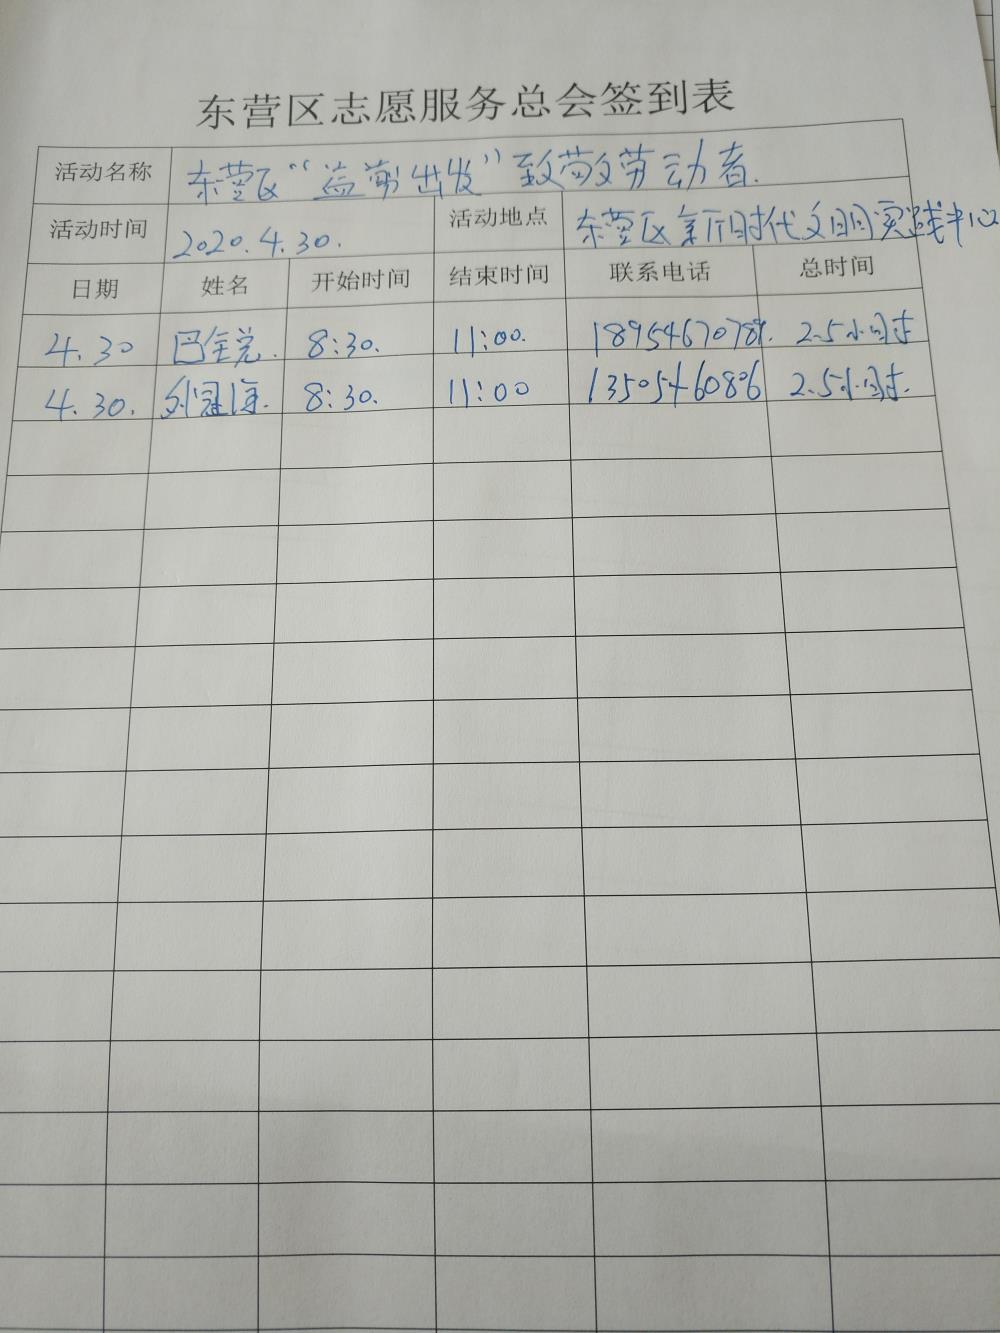 东营区志愿服务总会签到表
活动名称 东营区“益剪出发”致敬劳动者.
活动时间 2020.4.30. 活动地点 东营区新时代文明实践中心
日期 姓名 开始时间 结束时间 联系电话 总时间
4.30 8:30. 11:00. 2.5小时
4.30. 8:30. 11:00 13505460806 2.5小时.